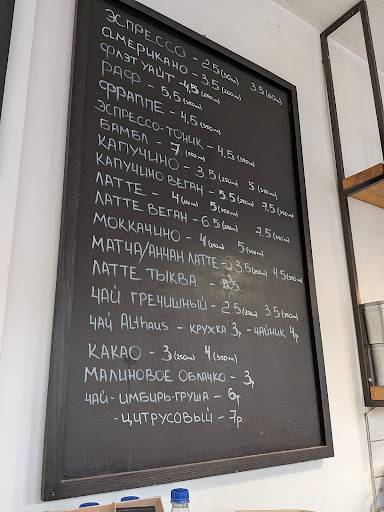 ЭСПРЕССО - 2.5 (30ml) 3.5 (60ml)
АМЕРИКАНО - 3.5 (200ml)
ФЛЭТ УАЙТ - 4,5 (200ml)
РАФ - 5,5 (350ml)
ФРАППЕ - 4,5 (350ml)
ЭСПРЕССО-ТОНИК - 4,5 (350ml)
БАМБЛ - 7 (350ml)
КАПУЧИНО - 3,5 (250ml) 5 (350ml)
КАПУЧИНО ВЕГАН - 5.5 (250ml) 7,5 (350ml)
ЛАТТЕ - 4 (250ml) 5 (350ml)
ЛАТТЕ ВЕГАН - 6.5 (250ml) 7.5 (350ml)
МОККАЧИНО - 4 (250ml) 5 (350ml)
МАТЧА/АНЧАН ЛАТТЕ - 3.5 (250ml) 4.5 (350ml)
ЛАТТЕ ТЫКВА -
ЧАЙ ГРЕЧИШНЫЙ - 2.5 (250ml) 3.5 (350ml)
ЧАЙ Althaus - КРУЖКА 3р - ЧАЙНИК 4р
КАКАО - 3 (250ml) 4 (350ml)
МАЛИНОВОЕ ОБЛАЧКО - 3р
ЧАЙ - ИМБИРЬ-ГРУША - 6р
- ЦИТРУСОВЫЙ - 7р